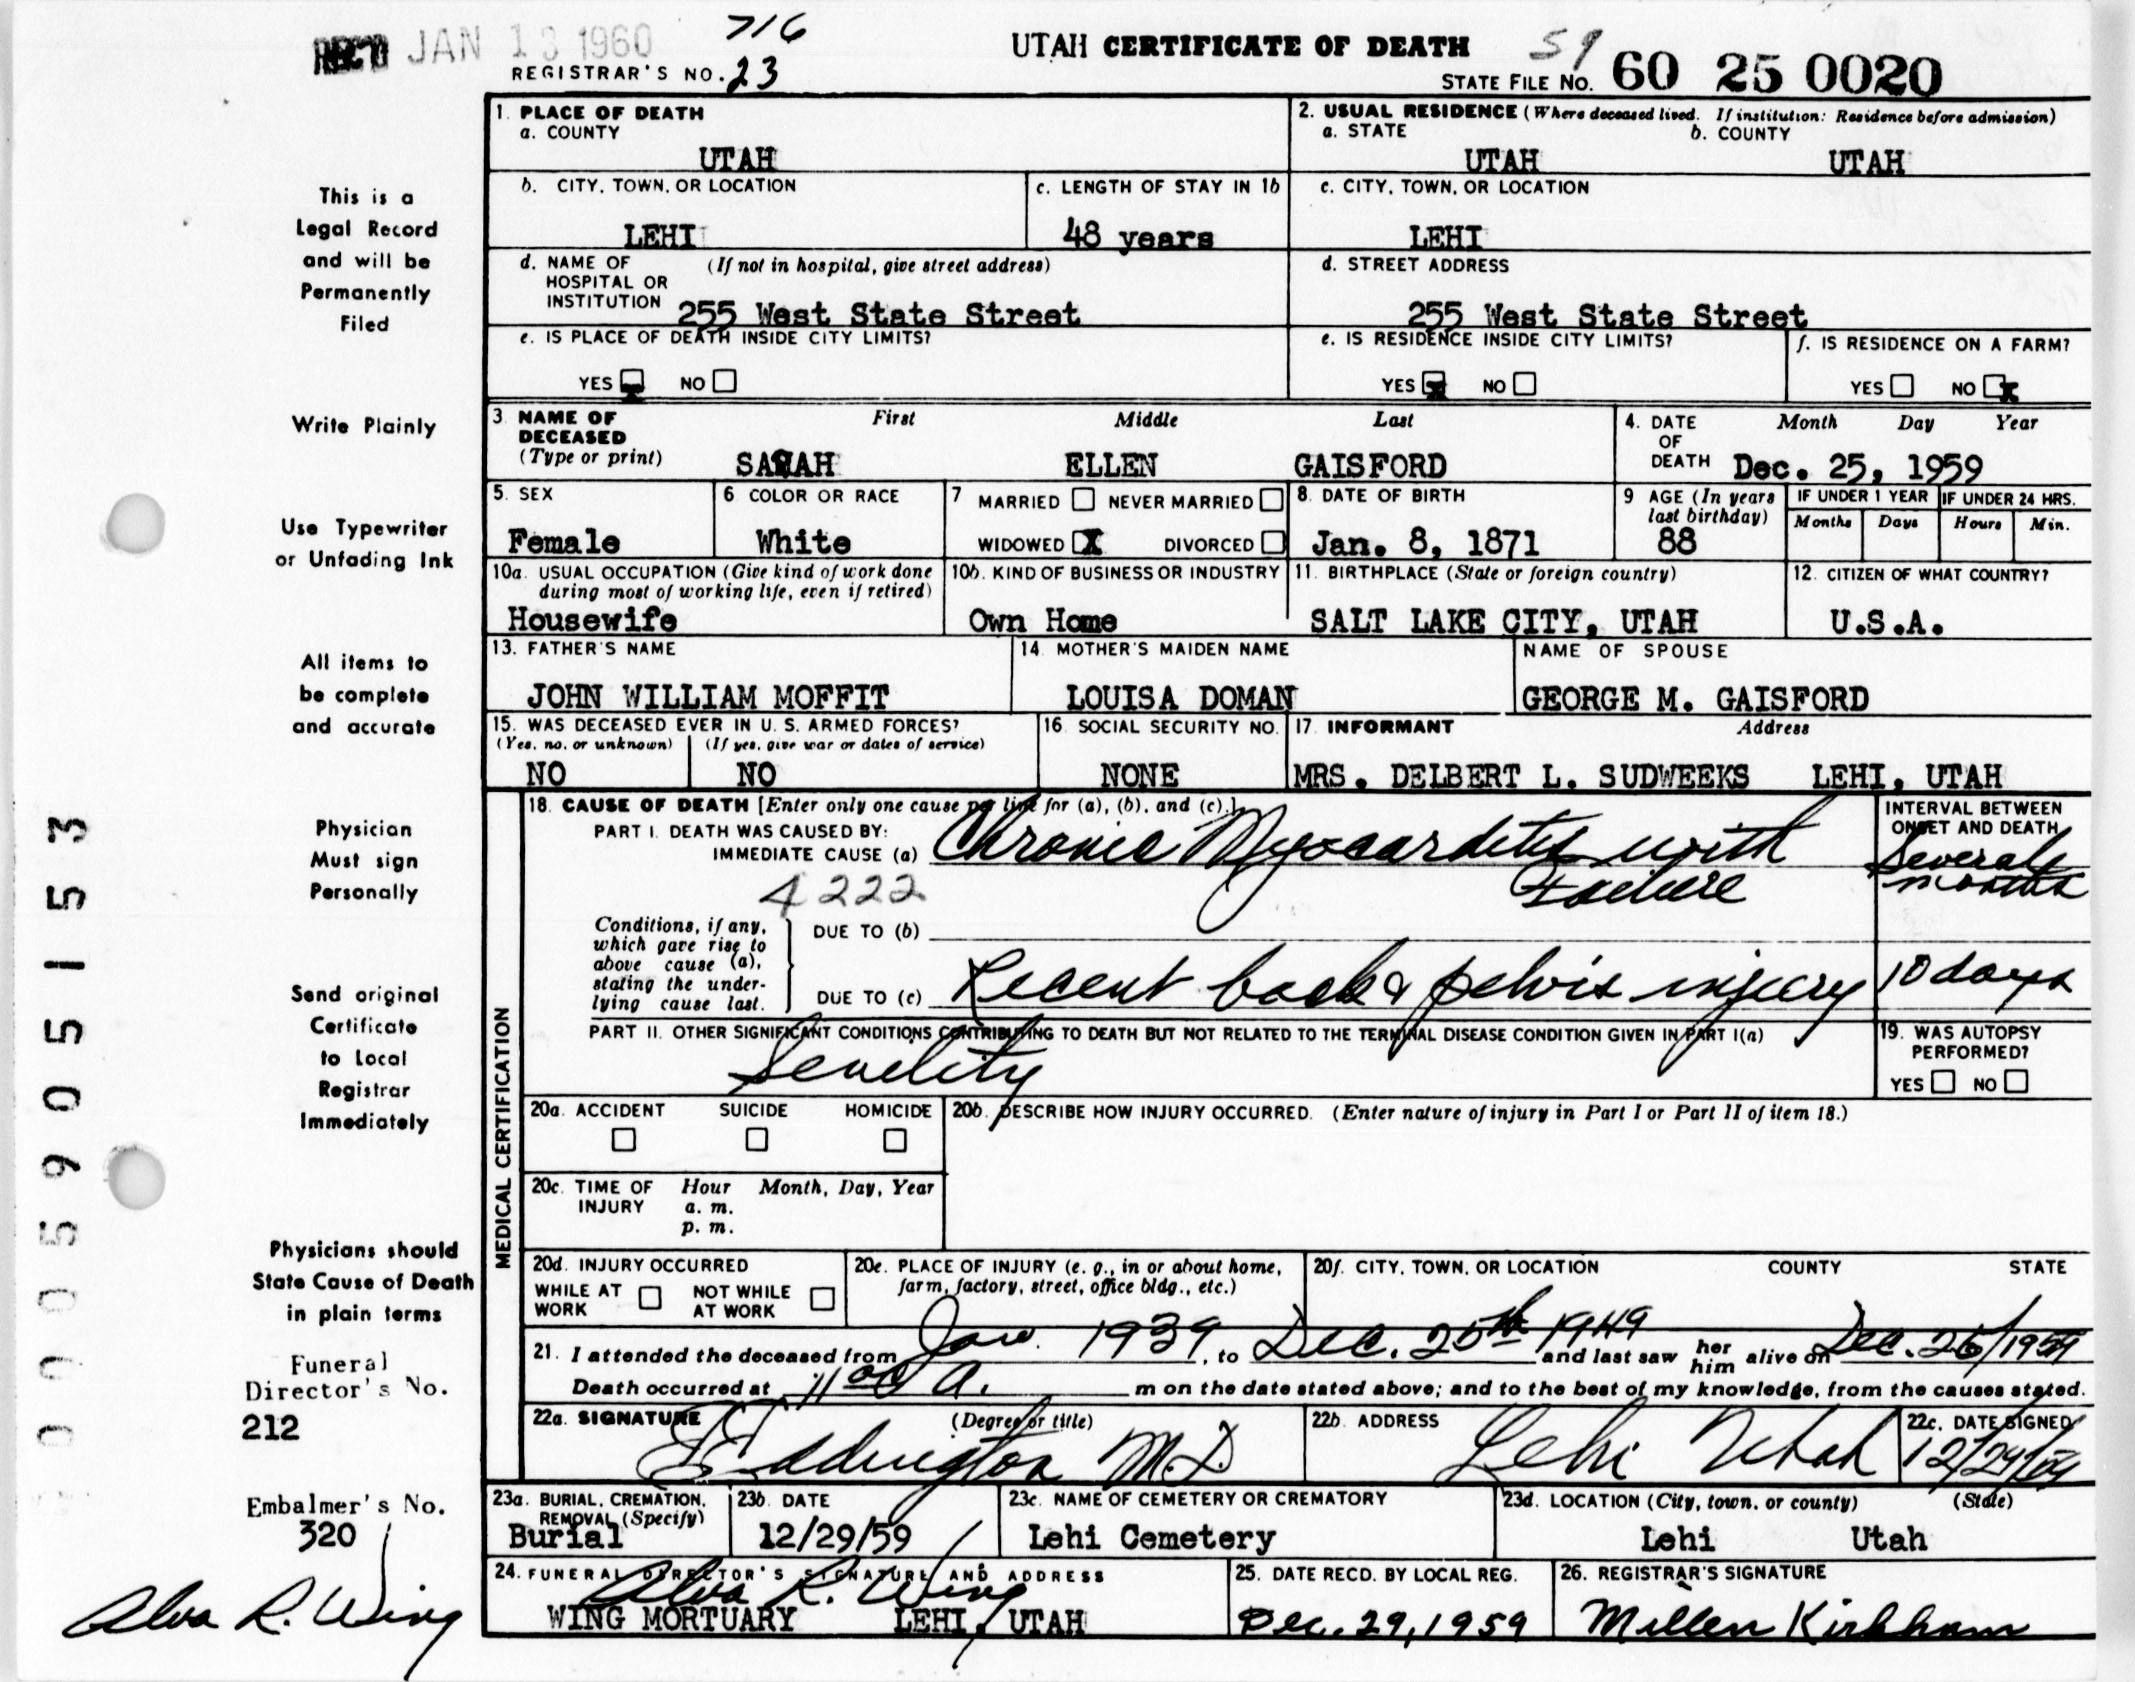 REC'D JAN 13 1960
716
REGISTRAR'S NO. 23
UTAH CERTIFICATE OF DEATH
59
STATE FILE NO. 60 25 0020
This is a
Legal Record
and will be
Permanently
Filed
Write Plainly
Use Typewriter
or Unfading Ink
All items to
be complete
and accurate
Physician
Must sign
Personally
Send original
Certificate
to Local
Registrar
Immediately
Physicians should
State Cause of Death
in plain terms
Funeral
Director's No.
212
Embalmer's No.
320
Alva R. Wing
0005905153
1. PLACE OF DEATH
a. COUNTY
UTAH
b. CITY, TOWN, OR LOCATION
LEHI
c. LENGTH OF STAY IN 1b
48 years
d. NAME OF (If not in hospital, give street address)
HOSPITAL OR
INSTITUTION 255 West State Street
e. IS PLACE OF DEATH INSIDE CITY LIMITS?
YES NO
2. USUAL RESIDENCE (Where deceased lived. If institution: Residence before admission)
a. STATE b. COUNTY
UTAH UTAH
c. CITY, TOWN, OR LOCATION
LEHI
d. STREET ADDRESS
255 West State Street
e. IS RESIDENCE INSIDE CITY LIMITS?
YES X NO
f. IS RESIDENCE ON A FARM?
YES NO X
3. NAME OF First Middle Last
DECEASED
(Type or print) SARAH ELLEN GAISFORD
4. DATE Month Day Year
OF
DEATH Dec. 25, 1959
5. SEX
Female
6 COLOR OR RACE
White
7 MARRIED NEVER MARRIED
WIDOWED X DIVORCED
8. DATE OF BIRTH
Jan. 8, 1871
9 AGE (In years
last birthday)
88
IF UNDER 1 YEAR IF UNDER 24 HRS.
Months Days Hours Min.
10a. USUAL OCCUPATION (Give kind of work done
during most of working life, even if retired)
Housewife
10b. KIND OF BUSINESS OR INDUSTRY
Own Home
11. BIRTHPLACE (State or foreign country)
SALT LAKE CITY, UTAH
12. CITIZEN OF WHAT COUNTRY?
U.S.A.
13. FATHER'S NAME
JOHN WILLIAM MOFFIT
14. MOTHER'S MAIDEN NAME
LOUISA DOMAN
NAME OF SPOUSE
GEORGE M. GAISFORD
15. WAS DECEASED EVER IN U. S. ARMED FORCES?
(Yes, no, or unknown) (If yes, give war or dates of service)
NO NO
16. SOCIAL SECURITY NO.
NONE
17. INFORMANT Address
MRS. DELBERT L. SUDWEEKS LEHI, UTAH
MEDICAL CERTIFICATION
18. CAUSE OF DEATH [Enter only one cause per line for (a), (b), and (c).]
PART I. DEATH WAS CAUSED BY:
IMMEDIATE CAUSE (a) Chronic Myocarditis with
Failure
4222
INTERVAL BETWEEN
ONSET AND DEATH
Several
months
Conditions, if any,
which gave rise to
above cause (a),
stating the under-
lying cause last.
DUE TO (b)
DUE TO (c) Recent back & pelvis injury 10 days
PART II. OTHER SIGNIFICANT CONDITIONS CONTRIBUTING TO DEATH BUT NOT RELATED TO THE TERMINAL DISEASE CONDITION GIVEN IN PART I(a)
Senelity
19. WAS AUTOPSY
PERFORMED?
YES NO
20a. ACCIDENT SUICIDE HOMICIDE
20b. DESCRIBE HOW INJURY OCCURRED. (Enter nature of injury in Part I or Part II of item 18.)
20c. TIME OF Hour Month, Day, Year
INJURY a. m.
p. m.
20d. INJURY OCCURRED
WHILE AT NOT WHILE
WORK AT WORK
20e. PLACE OF INJURY (e. g., in or about home,
farm, factory, street, office bldg., etc.)
20f. CITY, TOWN, OR LOCATION COUNTY STATE
21. I attended the deceased from Jan. 1939, to Dec. 25th 1949 and last saw her him alive on Dec. 25/1959
Death occurred at 11 00 A. m on the date stated above; and to the best of my knowledge, from the causes stated.
22a. SIGNATURE (Degree or title)
Eddington M.D.
22b. ADDRESS
Lehi Utah
22c. DATE SIGNED
12/29/59
23a. BURIAL, CREMATION,
REMOVAL (Specify)
Burial
23b. DATE
12/29/59
23c. NAME OF CEMETERY OR CREMATORY
Lehi Cemetery
23d. LOCATION (City, town, or county) (State)
Lehi Utah
24. FUNERAL DIRECTOR'S SIGNATURE AND ADDRESS
Alva R. Wing
WING MORTUARY LEHI, UTAH
25. DATE RECD. BY LOCAL REG.
Dec. 29, 1959
26. REGISTRAR'S SIGNATURE
Millen Kirkham